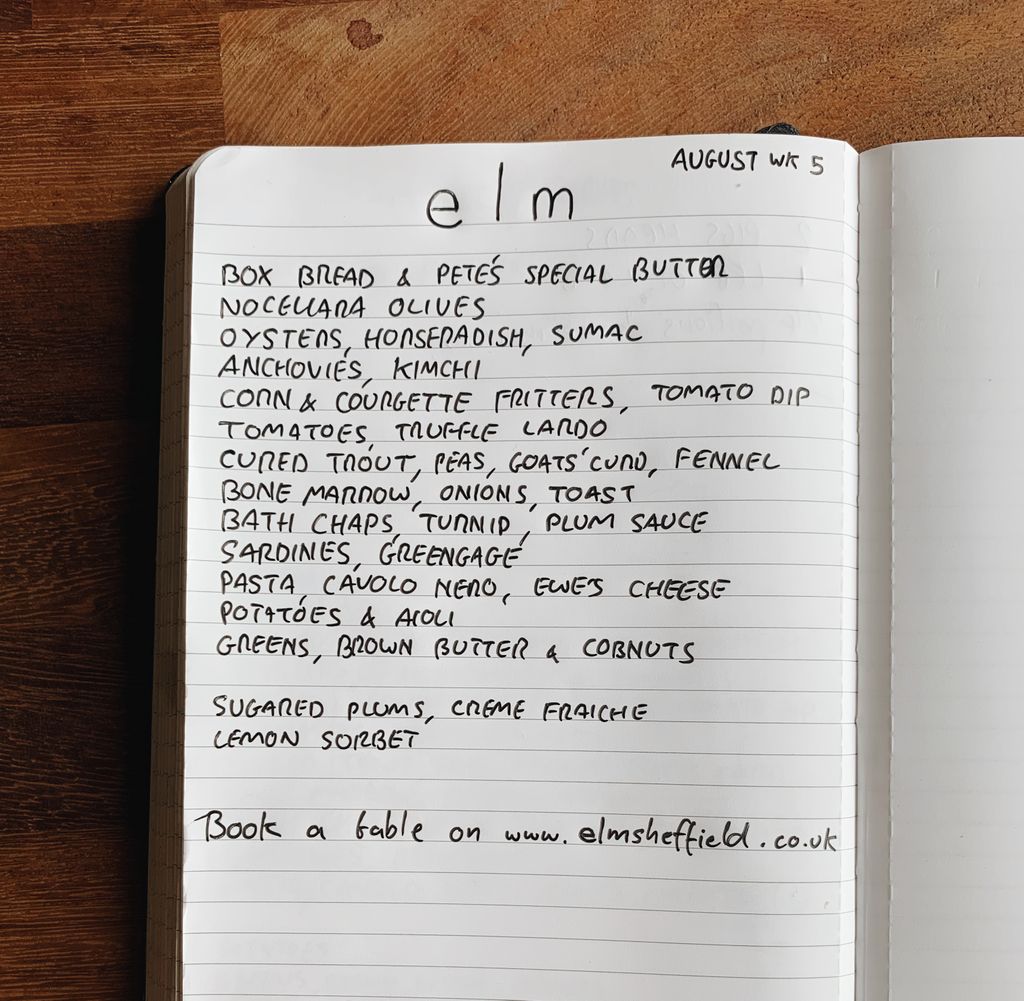 AUGUST WK 5
elm
BOX BREAD & PETE'S SPECIAL BUTTER
NOCELLARA OLIVES
OYSTERS, HORSERADISH, SUMAC
ANCHOVIES, KIMCHI
CORN & COURGETTE FRITTERS, TOMATO DIP
TOMATOES, TRUFFLE LARDO
CURED TROUT, PEAS, GOATS' CURD, FENNEL
BONE MARROW, ONIONS, TOAST
BATH CHAPS, TURNIP, PLUM SAUCE
SARDINES, GREENGAGE
PASTA, CAVOLO NERO, EWE'S CHEESE
POTATOES & AIOLI
GREENS, BROWN BUTTER & COBNUTS
SUGARED PLUMS, CREME FRAICHE
LEMON SORBET
Book a table on www.elmsheffield.co.uk